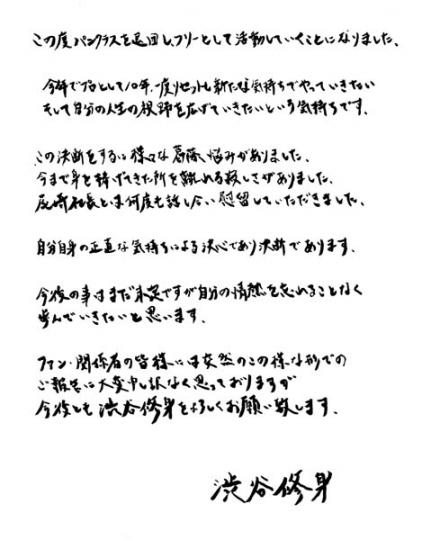 この度パンクラスを退団し、フリーとして活動していくことになりました。
今年でプロとして10年、一度リセットし新たな気持ちでやっていきたい
そして自分の人生の視野を広げていきたいという気持ちです。
この決断をするに様々な葛藤、悩みがありました。
今まで身を捧げてきた所を離れる寂しさがありました。
尾崎社長とは何度も話し合い慰留していただきました。
自分自身の正直な気持ちによる決心であり決断であります。
今後の事はまだ未定ですが自分の情熱を忘れることなく
歩んでいきたいと思います。
ファン・関係者の皆様には突然のこの様な形での
ご報告に大変申し訳なく思っておりますが
今後とも渋谷修身をよろしくお願い致します。
渋谷修身